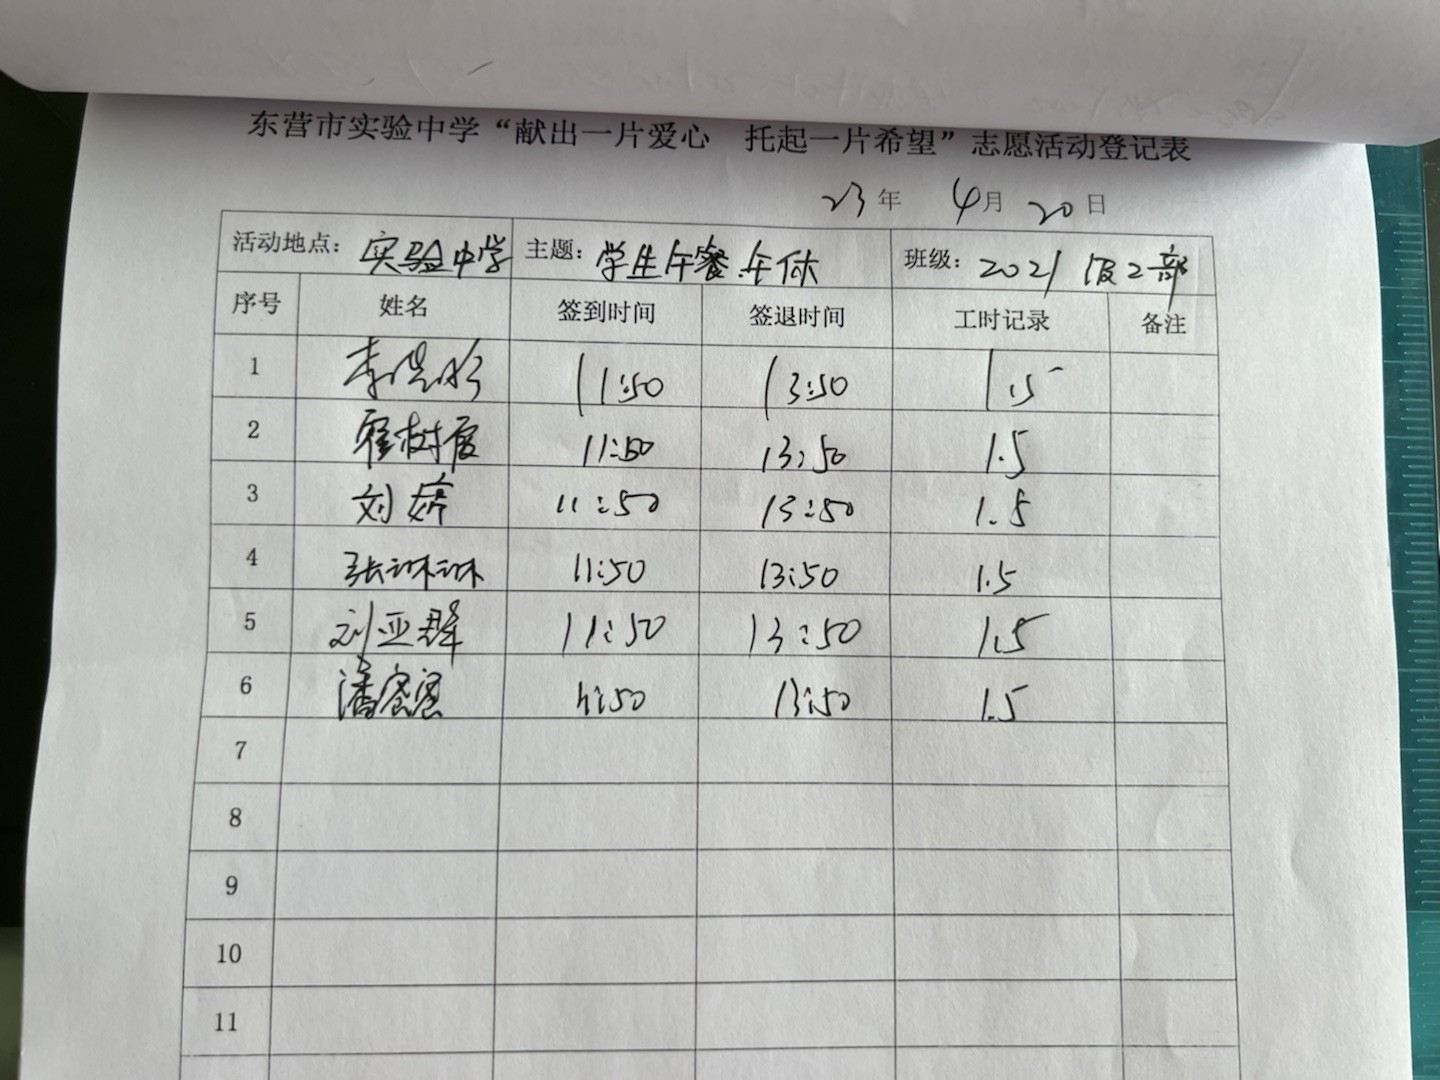 东营市实验中学“献出一片爱心 托起一片希望”志愿活动登记表
23年 4月 20日
活动地点：实验中学 主题：学生午餐.午休 班级：2021级2部
序号 姓名 签到时间 签退时间 工时记录 备注
1 李 11:50 13:50 1.5
2 树 11:50 13:50 1.5
3 刘婷 11:50 13:50 1.5
4 张琳琳 11:50 13:50 1.5
5 刘亚群 11:50 13:50 1.5
6 潘蜜蜜 11:50 13:50 1.5
7
8
9
10
11